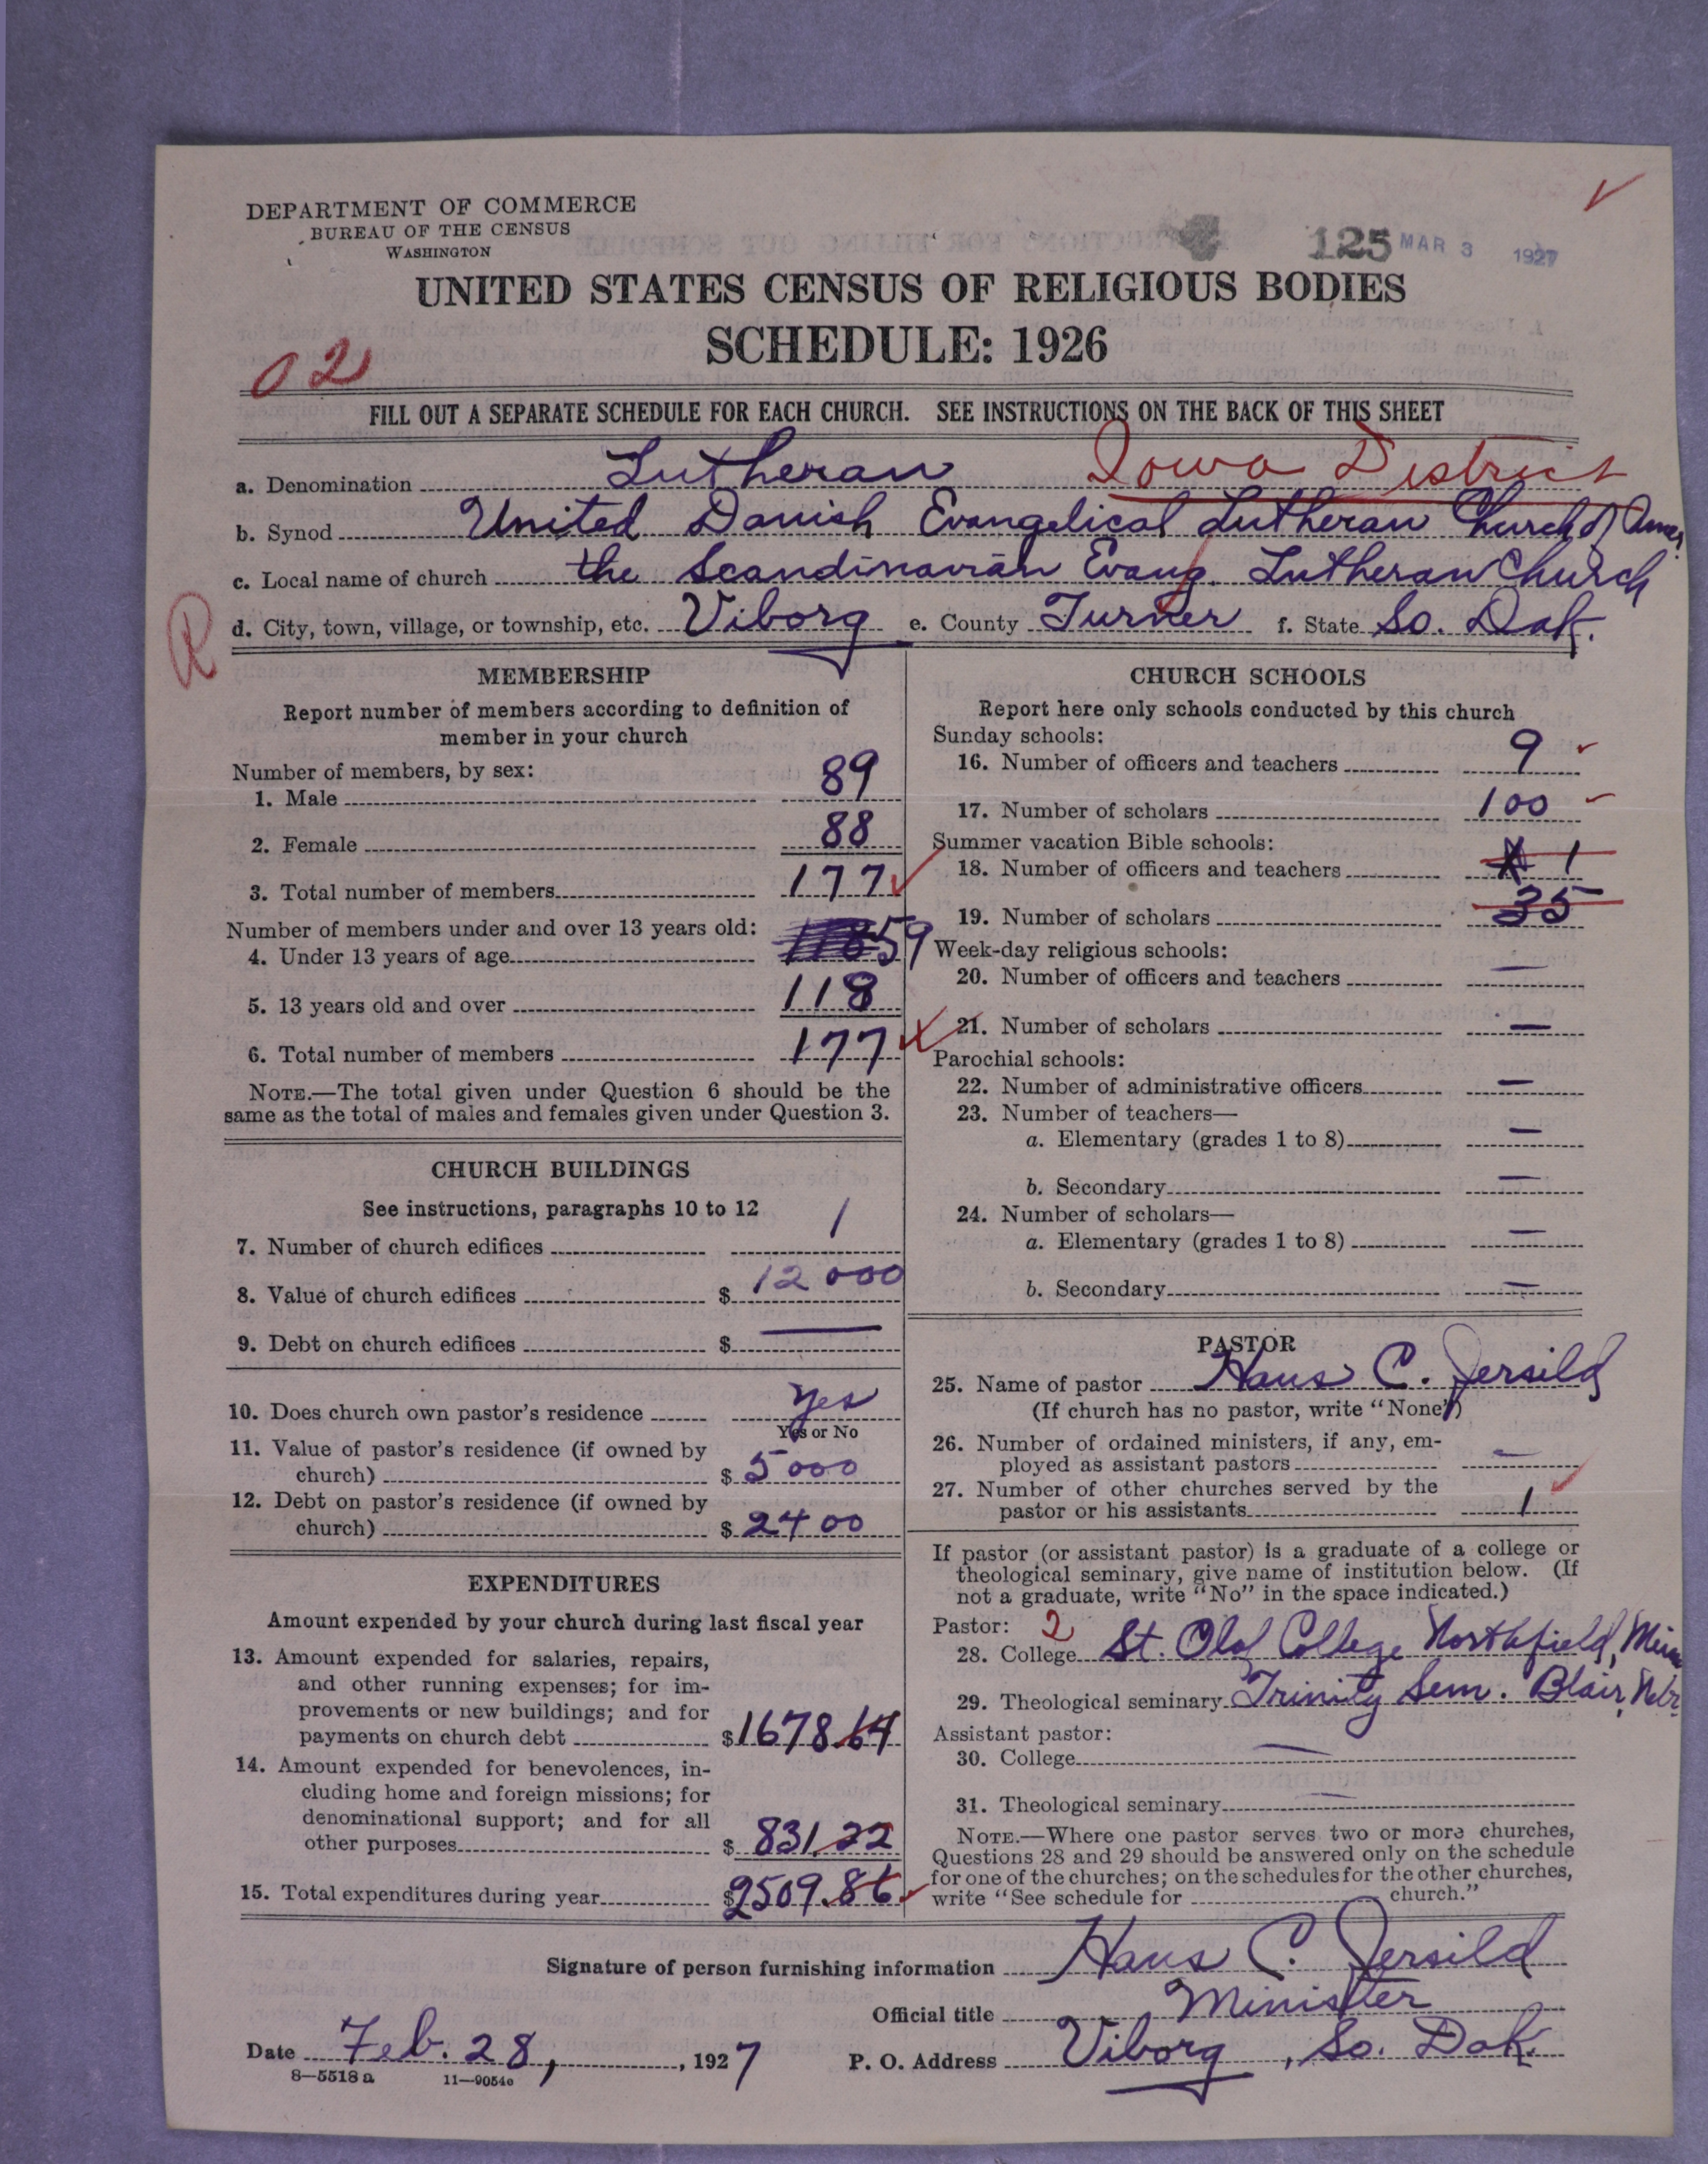 DEPARTMENT OF COMMERCE
BUREAU OF THE CENSUS
WASHINGTON
125 MAR 3 1927
UNITED STATES CENSUS OF RELIGIOUS BODIES
SCHEDULE: 1926
02
FILL OUT A SEPARATE SCHEDULE FOR EACH CHURCH. SEE INSTRUCTIONS ON THE BACK OF THIS SHEET
a. Denomination Lutheran Iowa District
b. Synod United Danish Evangelical Lutheran Church of Amer.
c. Local name of church the Scandinavian Evang. Lutheran Church
R
d. City, town, village, or township, etc. Viborg e. County Turner f. State So. Dak.
MEMBERSHIP
Report number of members according to definition of
member in your church
Number of members, by sex:
1. Male 89
2. Female 88
3. Total number of members 177
Number of members under and over 13 years old:
4. Under 13 years of age 59
5. 13 years old and over 118
6. Total number of members 177
NOTE.—The total given under Question 6 should be the
same as the total of males and females given under Question 3.
CHURCH BUILDINGS
See instructions, paragraphs 10 to 12
7. Number of church edifices 1
8. Value of church edifices $ 12000
9. Debt on church edifices $ —
10. Does church own pastor's residence Yes
Yes or No
11. Value of pastor's residence (if owned by
church) $ 5000
12. Debt on pastor's residence (if owned by
church) $ 2400
EXPENDITURES
Amount expended by your church during last fiscal year
13. Amount expended for salaries, repairs,
and other running expenses; for im-
provements or new buildings; and for
payments on church debt $ 1678.64
14. Amount expended for benevolences, in-
cluding home and foreign missions; for
denominational support; and for all
other purposes $ 831.22
15. Total expenditures during year $ 2509.86
CHURCH SCHOOLS
Report here only schools conducted by this church
Sunday schools:
16. Number of officers and teachers 9
17. Number of scholars 100
Summer vacation Bible schools:
18. Number of officers and teachers 1
19. Number of scholars 35
Week-day religious schools:
20. Number of officers and teachers —
21. Number of scholars —
Parochial schools:
22. Number of administrative officers —
23. Number of teachers—
a. Elementary (grades 1 to 8) —
b. Secondary —
24. Number of scholars—
a. Elementary (grades 1 to 8) —
b. Secondary —
PASTOR
25. Name of pastor Hans C. Jersild
(If church has no pastor, write "None")
26. Number of ordained ministers, if any, em-
ployed as assistant pastors —
27. Number of other churches served by the
pastor or his assistants 1
If pastor (or assistant pastor) is a graduate of a college or
theological seminary, give name of institution below. (If
not a graduate, write "No" in the space indicated.)
Pastor: 2
28. College St. Olaf College Northfield, Minn
29. Theological seminary Trinity Sem. Blair, Nebr.
Assistant pastor:
30. College —
31. Theological seminary —
NOTE.—Where one pastor serves two or more churches,
Questions 28 and 29 should be answered only on the schedule
for one of the churches; on the schedules for the other churches,
write "See schedule for church."
Signature of person furnishing information Hans C. Jersild
Official title Minister
Date Feb. 28, , 1927 P. O. Address Viborg, So. Dak.
8—5518 a 11—9054a